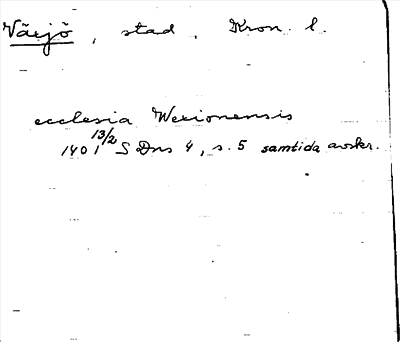 Växjö, stad, Kron. l.
ecclesia Wexionensis
1401 13/2 SDns 4, s. 5 samtida avskr.